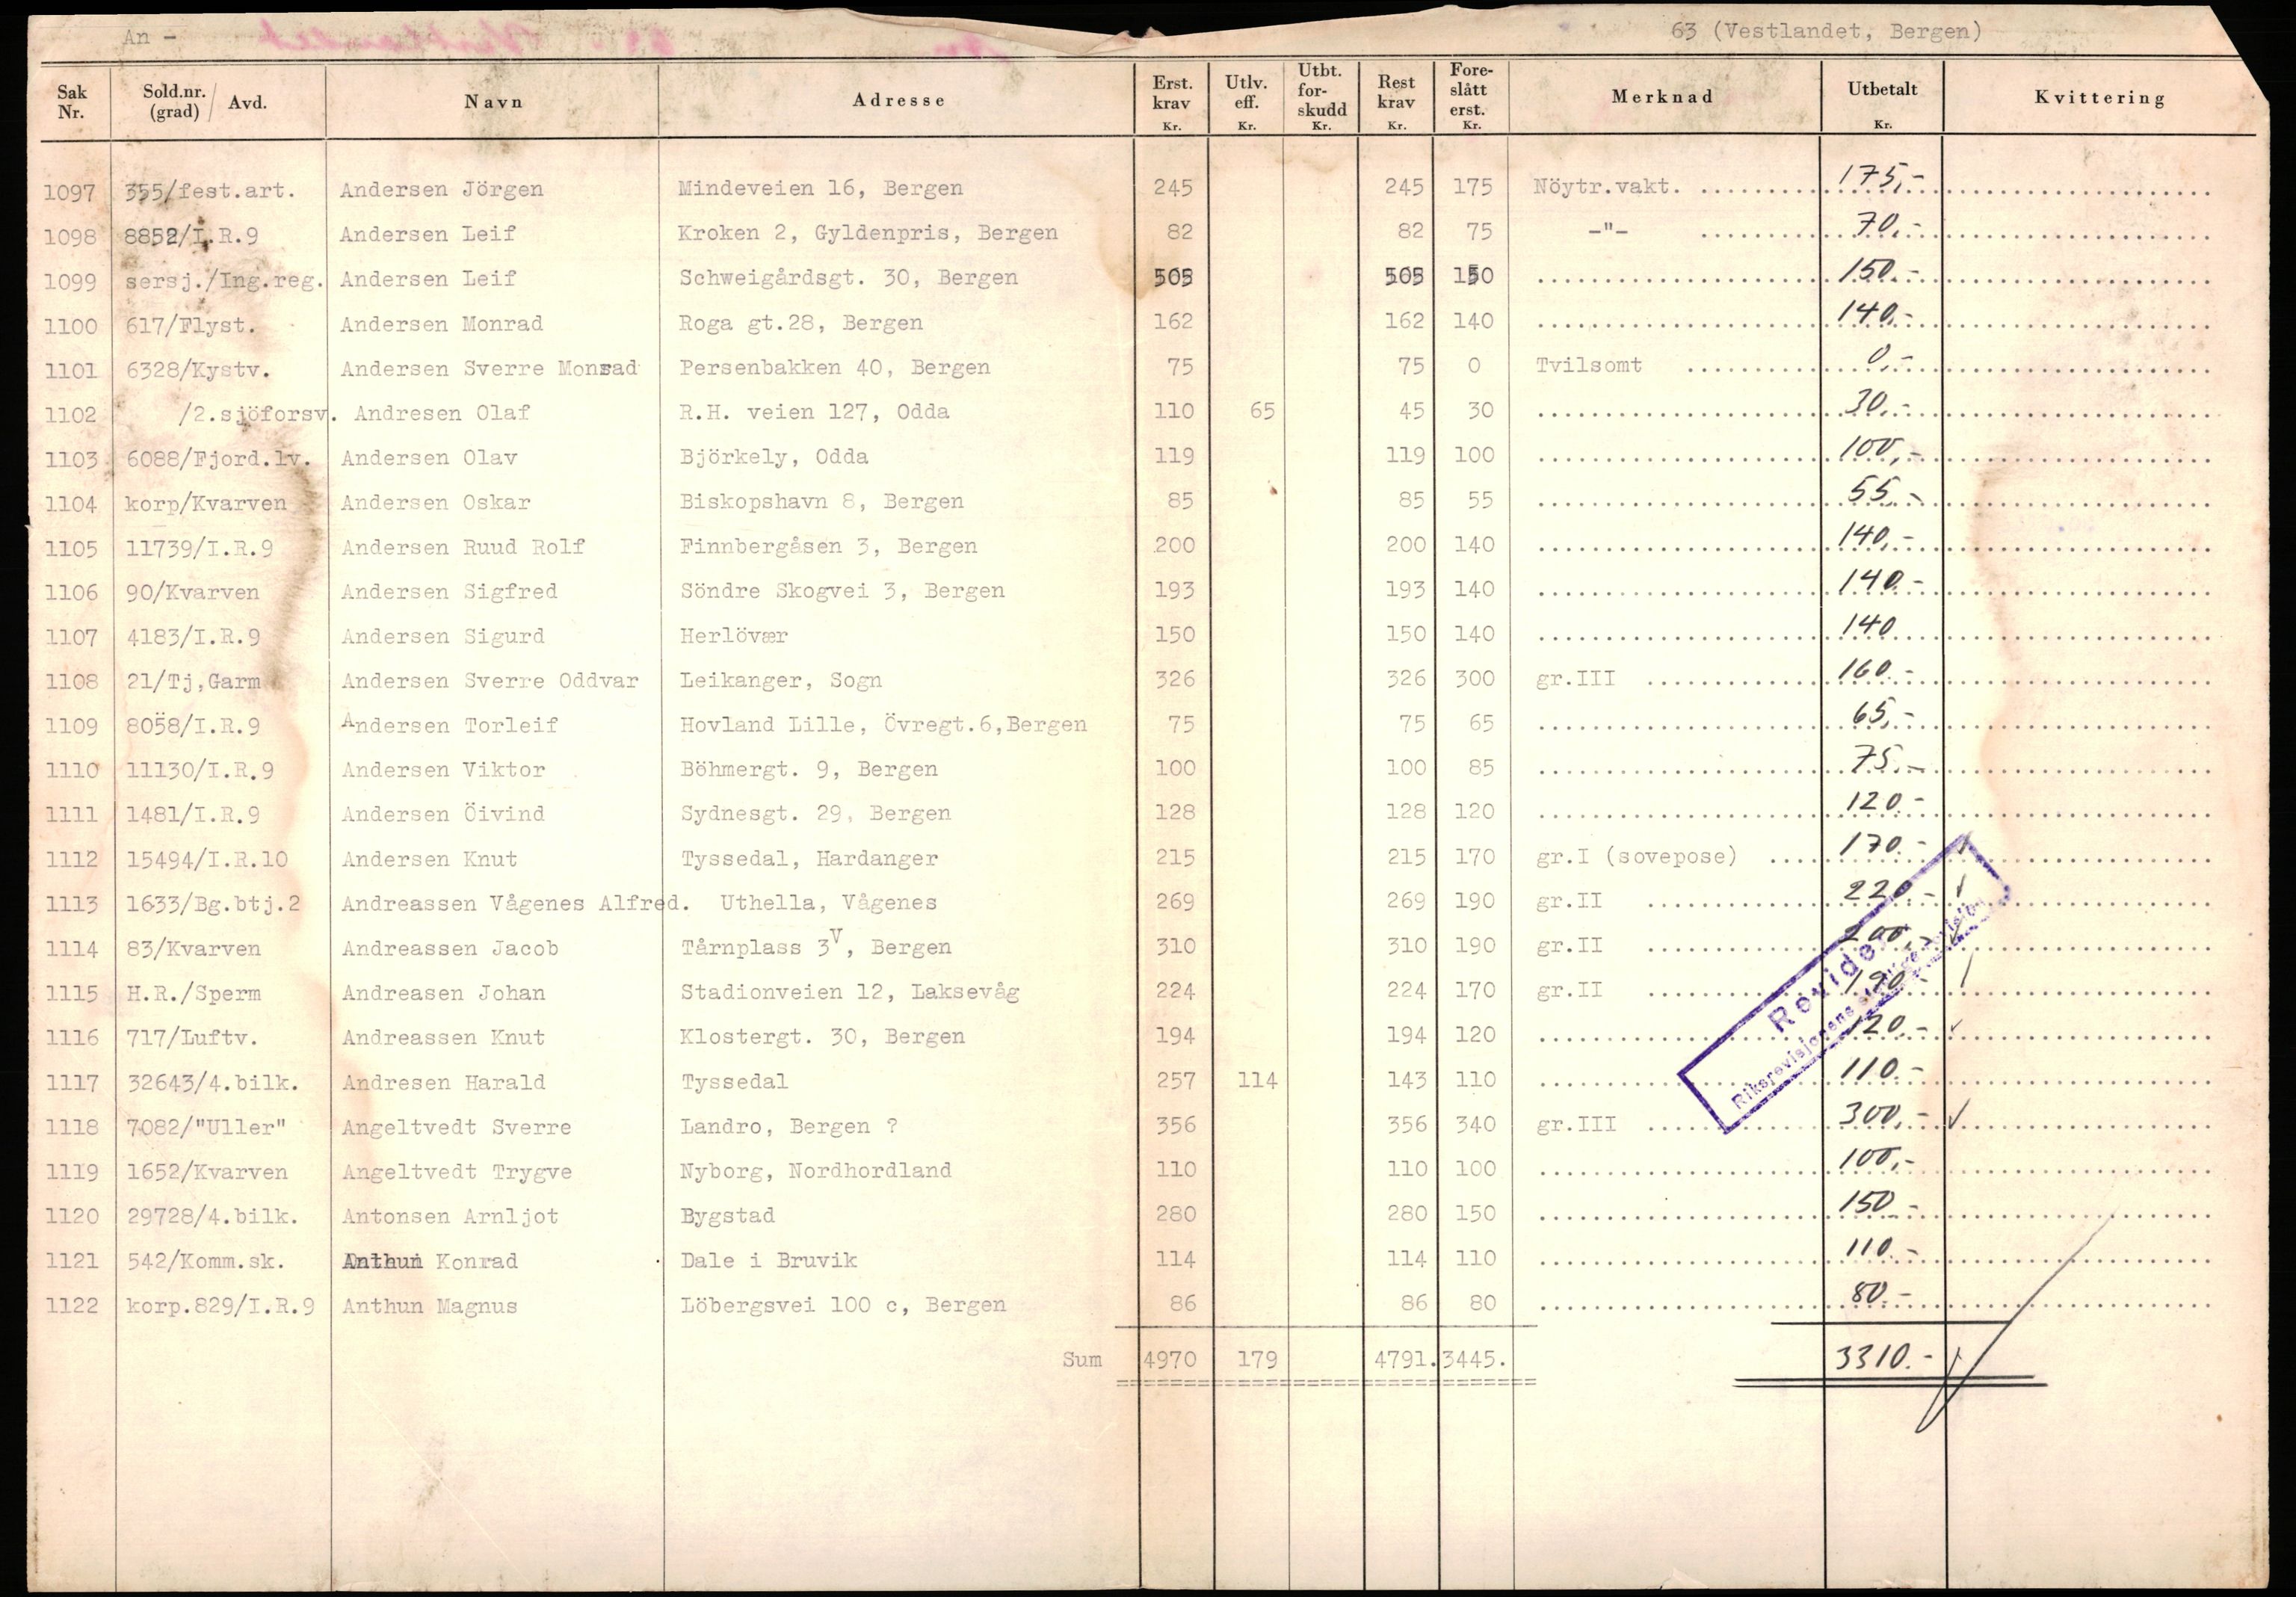 An -
63 (Vestlandet, Bergen)
Sak Nr. | Sold.nr. (grad) / Avd. | Navn | Adresse | Erst. krav Kr. | Utlv. eff. Kr. | Utbt. for- skudd Kr. | Rest krav Kr. | Fore- slått erst. Kr. | Merknad | Utbetalt Kr. | Kvittering
1097 355/fest.art. Andersen Jörgen Mindeveien 16, Bergen 245 245 175 Nöytr.vakt. 175,-
1098 8852/I.R.9 Andersen Leif Kroken 2, Gyldenpris, Bergen 82 82 75 -"- 70,-
1099 sersj./Ing.reg. Andersen Leif Schweigårdsgt. 30, Bergen 505 505 150 150.-
1100 617/Flyst. Andersen Monrad Roga gt.28, Bergen 162 162 140 140,-
1101 6328/Kystv. Andersen Sverre Monrad Persenbakken 40, Bergen 75 75 0 Tvilsomt 0,-
1102 /2.sjöforsv. Andresen Olaf R.H. veien 127, Odda 110 65 45 30 30,-
1103 6088/Fjord.lv. Andersen Olav Björkely, Odda 119 119 100 100,-
1104 korp/Kvarven Andersen Oskar Biskopshavn 8, Bergen 85 85 55 55.-
1105 11739/I.R.9 Andersen Ruud Rolf Finnbergåsen 3, Bergen 200 200 140 140,-
1106 90/Kvarven Andersen Sigfred Söndre Skogvei 3, Bergen 193 193 140 140.-
1107 4183/I.R.9 Andersen Sigurd Herlövær 150 150 140 140
1108 21/Tj,Garm Andersen Sverre Oddvar Leikanger, Sogn 326 326 300 gr.III 160.-
1109 8058/I.R.9 Andersen Torleif Hovland Lille, Övregt.6,Bergen 75 75 65 65,-
1110 11130/I.R.9 Andersen Viktor Böhmergt. 9, Bergen 100 100 85 75.-
1111 1481/I.R.9 Andersen Öivind Sydnesgt. 29, Bergen 128 128 120 120.-
1112 15494/I.R.10 Andersen Knut Tyssedal, Hardanger 215 215 170 gr.I (sovepose) 170.-
1113 1633/Bg.btj.2 Andreassen Vågenes Alfred. Uthella, Vågenes 269 269 190 gr.II 220.- ✓
1114 83/Kvarven Andreassen Jacob Tårnplass 3V, Bergen 310 310 190 gr.II 200,- ✓
1115 H.R./Sperm Andreasen Johan Stadionveien 12, Laksevåg 224 224 170 gr.II 190.-
1116 717/Luftv. Andreassen Knut Klostergt. 30, Bergen 194 194 120 120.- ✓
1117 32643/4.bilk. Andresen Harald Tyssedal 257 114 143 110 110.-
1118 7082/"Uller" Angeltvedt Sverre Landro, Bergen ? 356 356 340 gr.III 300,- ✓
1119 1652/Kvarven Angeltvedt Trygve Nyborg, Nordhordland 110 110 100 100,-
1120 29728/4.bilk. Antonsen Arnljot Bygstad 280 280 150 150.-
1121 542/Komm.sk. Anthun Konrad Dale i Bruvik 114 114 110 110.-
1122 korp.829/I.R.9 Anthun Magnus Löbergsvei 100 c, Bergen 86 86 80 80.-
Sum 4970 179 4791. 3445. 3310.-
Revidert
Riksrevisjonens